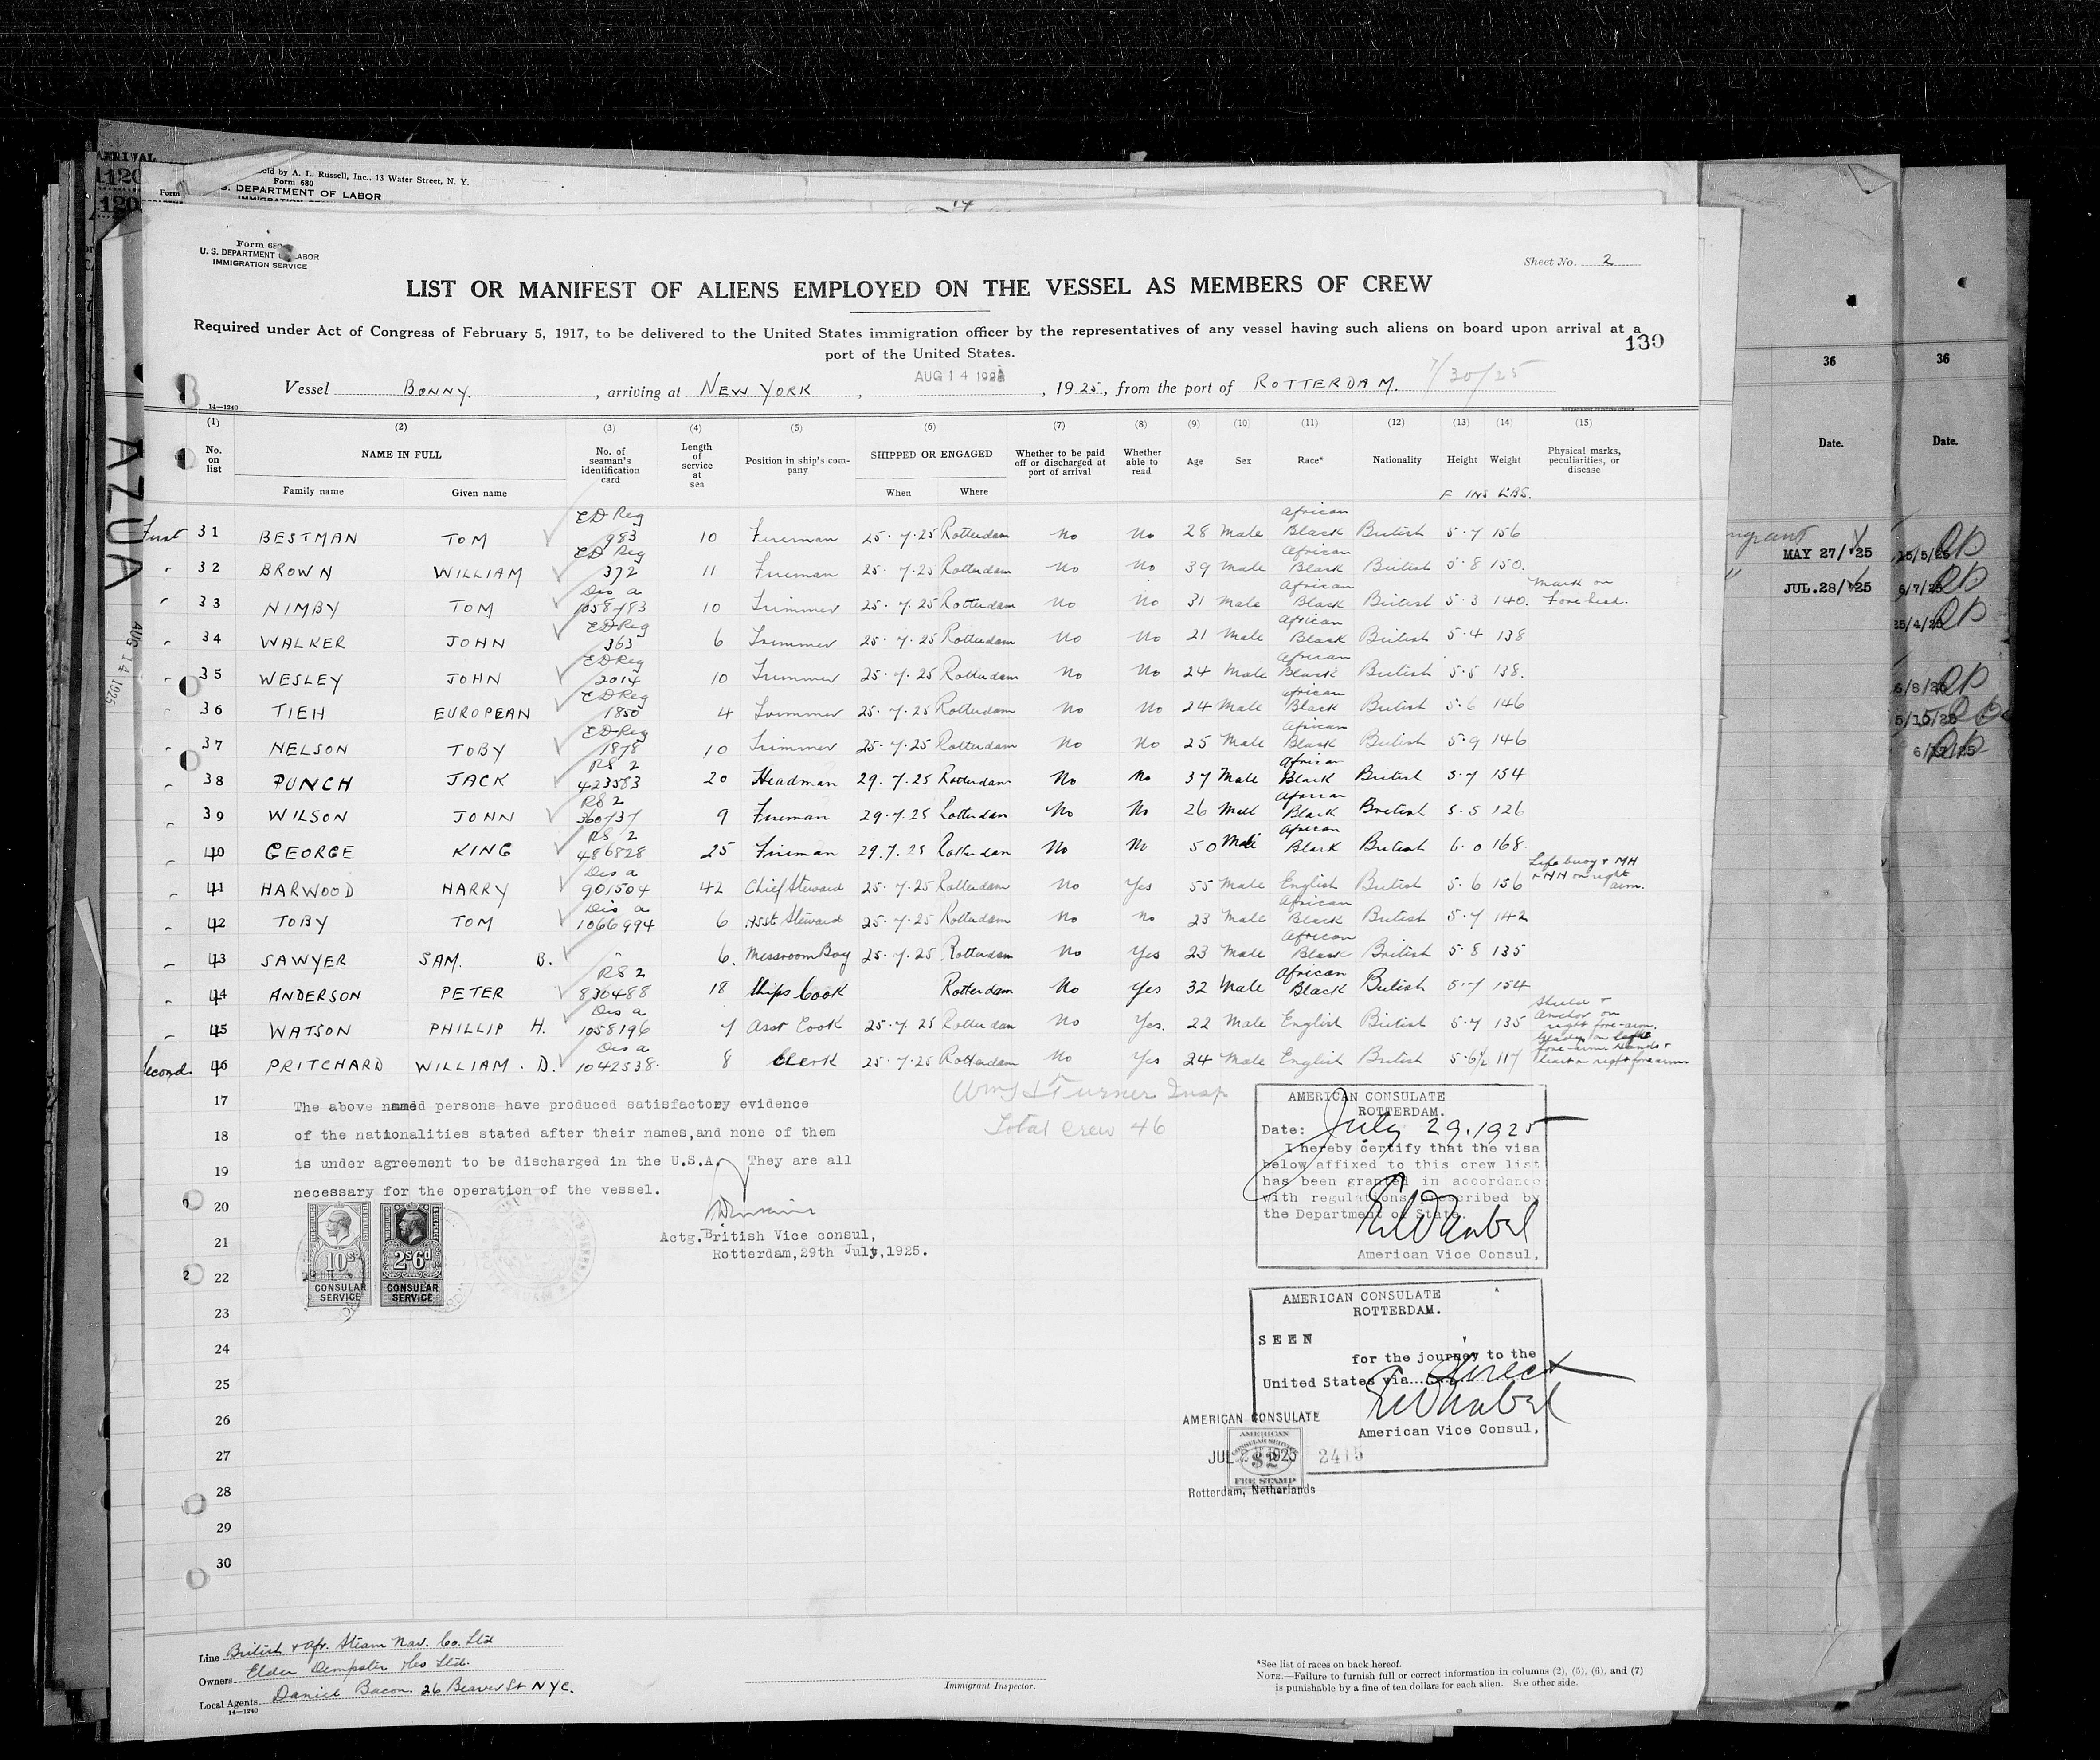 ARRIVAL
1120
120
Form
Sold by A. L. Russell, Inc., 13 Water Street, N. Y.
Form 680
S. DEPARTMENT OF LABOR
AZUA
AUG 14 1925
Form 680
U. S. DEPARTMENT OF LABOR
IMMIGRATION SERVICE
Sheet No. 2
LIST OR MANIFEST OF ALIENS EMPLOYED ON THE VESSEL AS MEMBERS OF CREW
Required under Act of Congress of February 5, 1917, to be delivered to the United States immigration officer by the representatives of any vessel having such aliens on board upon arrival at a
port of the United States.
139
Vessel BONNY, arriving at NEW YORK, AUG 14 1925, 1925, from the port of ROTTERDAM. 7/30/25
14—1240
(1) (2) (3) (4) (5) (6) (7) (8) (9) (10) (11) (12) (13) (14) (15)
No. on list NAME IN FULL No. of seaman's identification card Length of service at sea Position in ship's company SHIPPED OR ENGAGED Whether to be paid off or discharged at port of arrival Whether able to read Age Sex Race* Nationality Height Weight Physical marks, peculiarities, or disease
Family name Given name When Where F INS LBS.
First 31 BESTMAN TOM ED Reg 983 10 Fireman 25.7.25 Rotterdam No No 28 Male African Black British 5.7 156
" 32 BROWN WILLIAM ED Reg 372 11 Fireman 25.7.25 Rotterdam No No 39 Male African Black British 5.8 150.
" 33 NIMBY TOM Dis a 1058783 10 Trimmer 25.7.25 Rotterdam No No 31 Male African Black British 5.3 140. Mark on Forehead.
" 34 WALKER JOHN ED Reg 363 6 Trimmer 25.7.25 Rotterdam No No 21 Male African Black British 5.4 138
" 35 WESLEY JOHN ED Reg 2014 10 Trimmer 25.7.25 Rotterdam No No 24 Male African Black British 5.5 138.
" 36 TIEH EUROPEAN ED Reg 1850 4 Trimmer 25.7.25 Rotterdam No No 24 Male African Black British 5.6 146
" 37 NELSON TOBY ED Reg 1878 10 Trimmer 25.7.25 Rotterdam No No 25 Male African Black British 5.9 146
" 38 PUNCH JACK RS 2 423583 20 Headman 29.7.25 Rotterdam No No 37 Male African Black British 5.7 154
" 39 WILSON JOHN RS 2 360737 9 Fireman 29.7.25 Rotterdam No No 26 Male African Black British 5.5 126
" 40 GEORGE KING RS 2 486828 25 Fireman 29.7.25 Rotterdam No No 50 Male African Black British 6.0 168.
" 41 HARWOOD HARRY Dis a 901504 42 Chief Steward 25.7.25 Rotterdam No Yes 55 Male English British 5.6 156 Life buoy + MH + HH on right arm.
" 42 TOBY TOM Dis a 1066994 6 Asst Steward 25.7.25 Rotterdam No No 23 Male African Black British 5.7 142
" 43 SAWYER SAM. B. " 6. Messroom Boy 25.7.25 Rotterdam No Yes 23 Male African Black British 5.8 135
" 44 ANDERSON PETER RS 2 830488 18 Ships Cook Rotterdam No Yes 32 Male African Black British 5.7 154
" 45 WATSON PHILLIP H. Dis a 1058196 7 Asst Cook 25.7.25 Rotterdam No Yes. 22 Male English British 5.7 135 Shield + Anchor on right fore-arm.
Second 46 PRITCHARD WILLIAM. D. Dis a 1042538. 8 Clerk 25.7.25 Rotterdam No Yes 24 Male English British 5.6½ 117 on left fore-arm Hands + heart on right forearm
17 The above named persons have produced satisfactory evidence
18 of the nationalities stated after their names, and none of them
19 is under agreement to be discharged in the U.S.A. They are all
20 necessary for the operation of the vessel.
Actg. British Vice consul,
Rotterdam, 29th July, 1925.
10S
CONSULAR SERVICE
2S6d
CONSULAR SERVICE
Wm J Turner Insp
Total Crew 46
AMERICAN CONSULATE
ROTTERDAM.
Date: July 29. 1925
I hereby certify that the visa
below affixed to this crew list
has been granted in accordance
with regulations prescribed by
the Department of State.
American Vice Consul,
AMERICAN CONSULATE
ROTTERDAM.
SEEN
for the journey to the
United States via direct
American Vice Consul,
AMERICAN CONSULATE
AMERICAN
CONSULAR SERVICE
$2
FEE STAMP
JUL 1925
2415
Rotterdam, Netherlands
21
22
23
24
25
26
27
28
29
30
Line British & Afr. Steam Nav. Co. Ltd
Owners Elder Dempster & Co Ltd.
Local Agents Daniel Bacon. 26 Beaver St N.Y.C.
14—1240
Immigrant Inspector.
*See list of races on back hereof.
NOTE.—Failure to furnish full or correct information in columns (2), (5), (6), and (7)
is punishable by a fine of ten dollars for each alien. See other side.
36
Date.
MAY 27/25
JUL.28/25
36
Date.
15/5/25
6/7/25
25/4/25
6/8/25
5/10/25